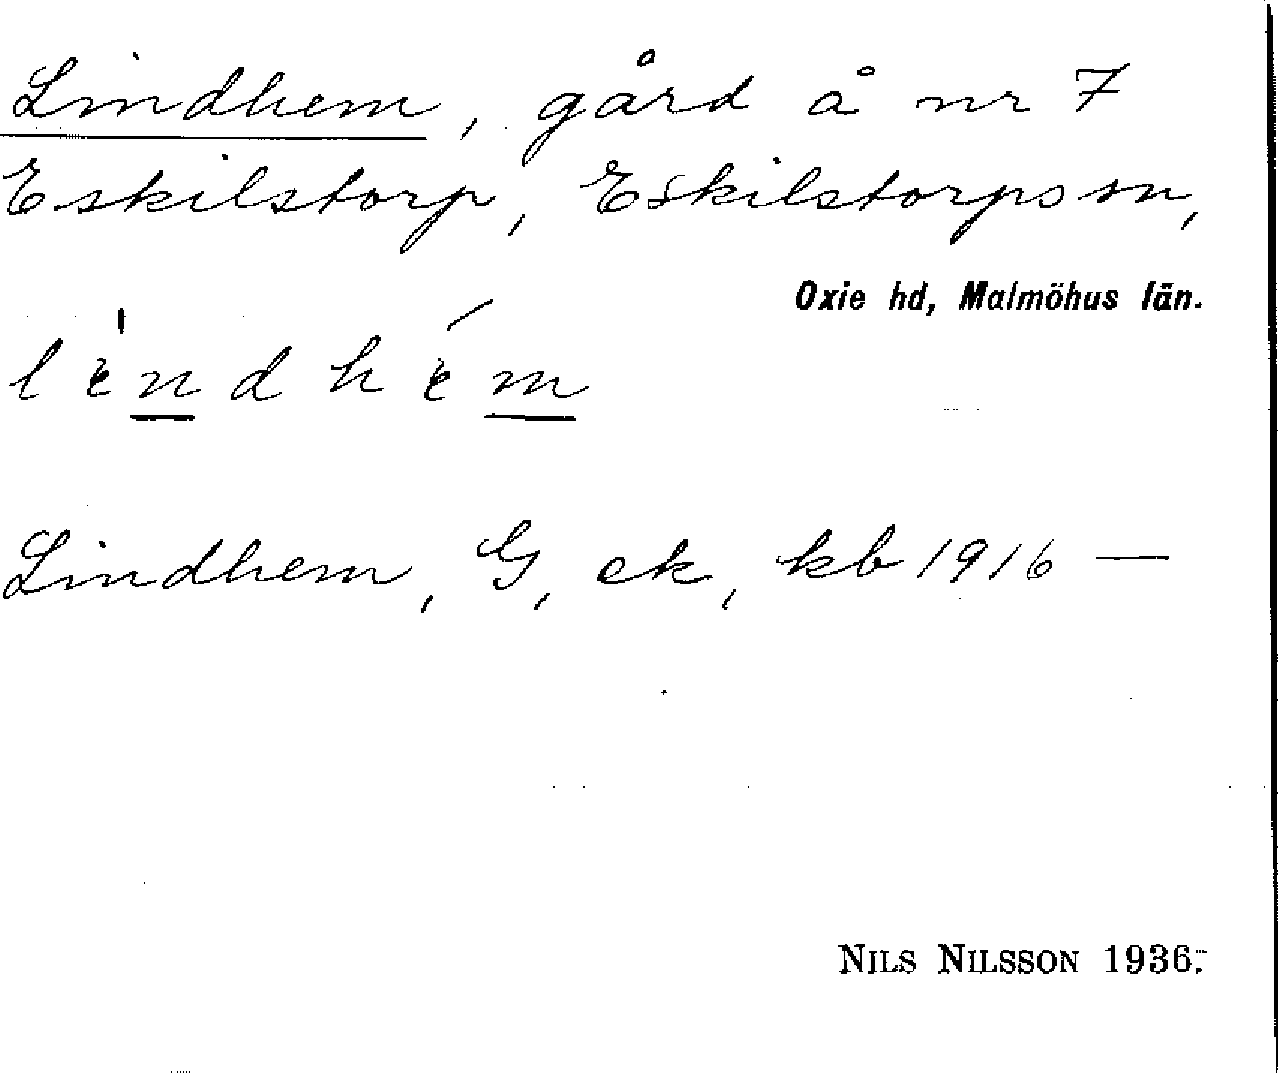 Lindhem, gård å nr 7
Eskilstorp, Eskilstorps sn,
Oxie hd, Malmöhus län.
Lindhem, G, ek, kb 1916 —
NILS NILSSON 1936.